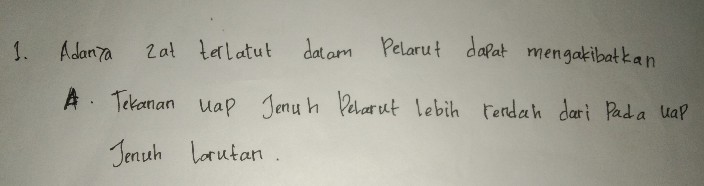 1. Adanya zat terlatut dalam Pelarut dapat mengakibatkan
A. Tekanan uap Jenuh Pelarut lebih rendah dari Pada uap
Jenuh larutan.